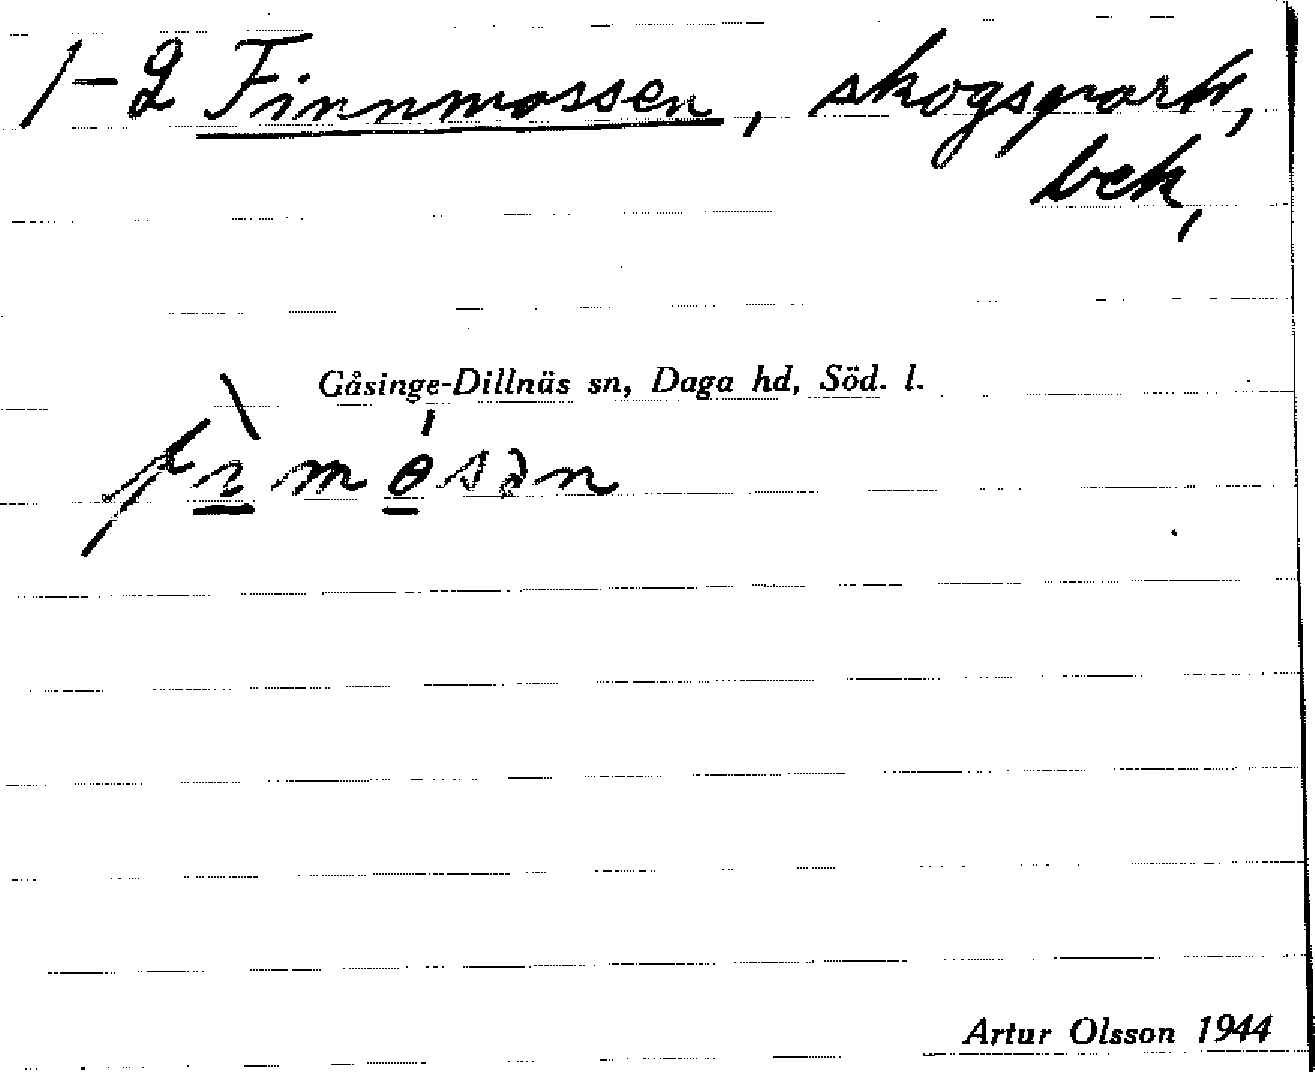 1-2 Finnmossen, skogspark,
bek,
Gåsinge-Dillnäs sn, Daga hd, Söd. l.
Artur Olsson 1944